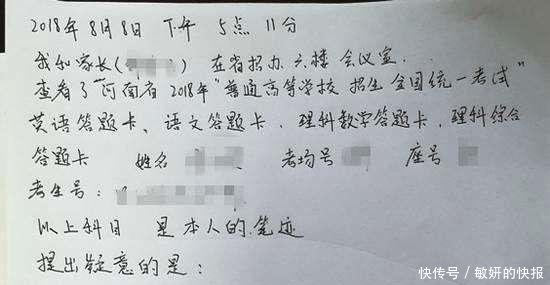 2018年8月8日 下午 5点 11分
我和家长( ) 在省招办 六楼 会议室.
查看了"河南省 2018年"普通高等学校 招生 全国统一考试"
英语答题卡、语文答题卡、理科数学答题卡、理科综合
答题卡 姓名 考场号 座号
考生号:
以上科目 是本人的笔迹
提出疑意的是:
快传号/敏妍的快报